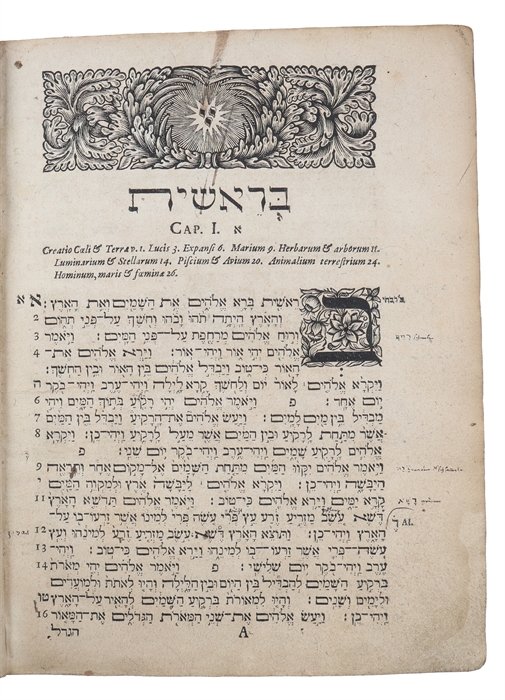 בראשית
CAP. I. א
Creatio Cœli & Terræ v. 1. Lucis 3. Expansi 6. Marium 9. Herbarum & arborum 11.
Luminarium & Stellarum 14. Piscium & Avium 20. Animalium terrestrium 24.
Hominum, maris & fœminæ 26.
ב ראשית ברא אלהים את השמים ואת הארץ: א א
2 והארץ היתה תהו ובהו וחשך על־פני תהום
ורוח אלהים מרחפת על־פני המים: ויאמר 3
אלהים יהי אור ויהי־אור: וירא אלהים את־ 4
האור כי־טוב ויבדל אלהים בין האור ובין החשך:
ויקרא אלהים לאור יום ולחשך קרא לילה ויהי־ערב ויהי־בקר ה
יום אחד: פ ויאמר אלהים יהי רקיע בתוך המים ויהי 6
מבדיל בין מים למים: ויעש אלהים את־הרקיע ויבדל בין המים 7
אשר מתחת לרקיע ובין המים אשר מעל לרקיע ויהי־כן: ויקרא 8
אלהים לרקיע שמים ויהי־ערב ויהי־בקר יום שני: פ
ויאמר אלהים יקוו המים מתחת השמים אל־מקום אחד ותראה 9
היבשה ויהי־כן: ויקרא אלהים ליבשה ארץ ולמקוה המים י
קרא ימים וירא אלהים כי־טוב: ויאמר אלהים תדשא הארץ 11
דשא עשב מזריע זרע עץ פרי עשה פרי למינו אשר זרעו־בו על־
AI.
הארץ ויהי־כן: ותוצא הארץ דשא עשב מזריע זרע למינהו ועץ 12
עשה־פרי אשר זרעו־בו למינהו וירא אלהים כי־טוב: ויהי־ 13
ערב ויהי־בקר יום שלישי: פ ויאמר אלהים יהי מארת 14
ברקיע השמים להבדיל בין היום ובין הלילה והיו לאתת ולמועדים
ולימים ושנים: והיו למאורת ברקיע השמים להאיר על־הארץ טו
ויהי־כן: ויעש אלהים את־שני המארת הגדלים את־המאור 16
A הגדל